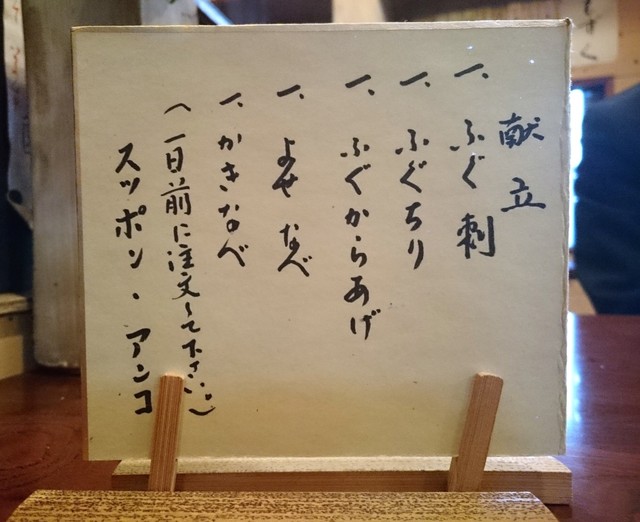 献立
一、ふぐ刺
一、ふぐちり
一、ふぐからあげ
一、よせなべ
一、かきなべ
(一日前に注文して下さい。)
スッポン、アンコ